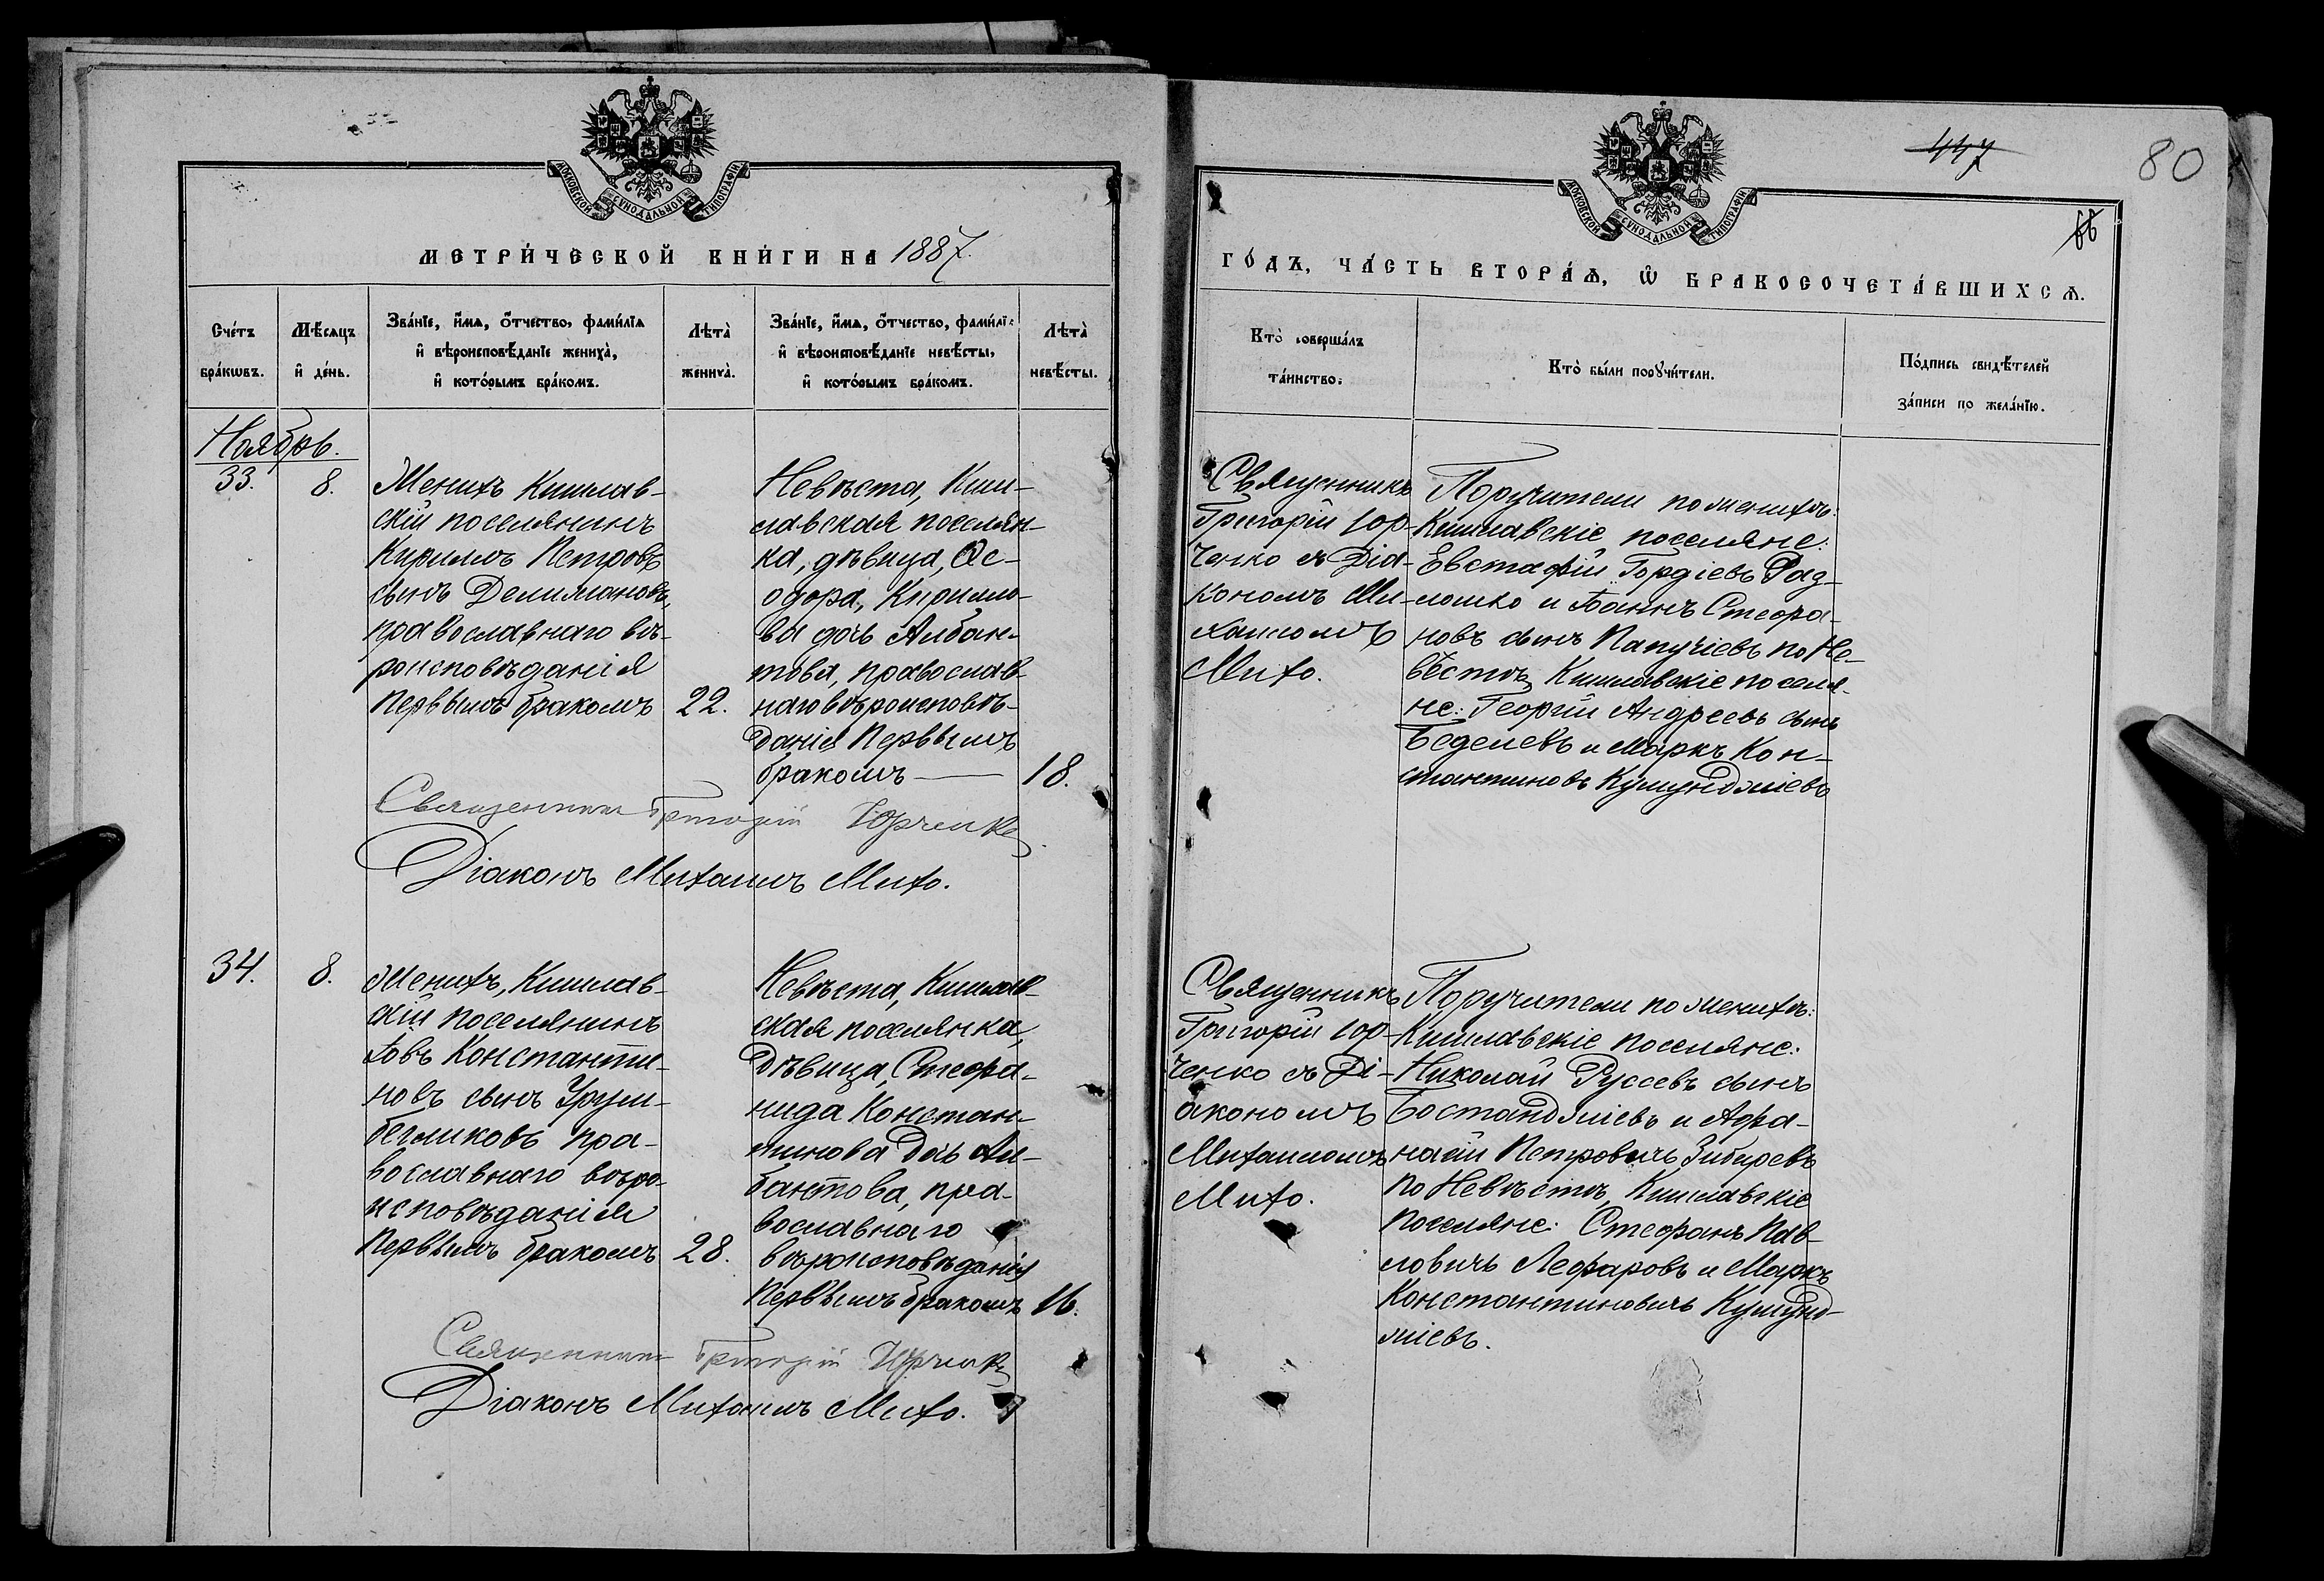 МОСКОВСКОЙ СѴНОДАЛЬНОЙ ТИПОГРАФІИ
МЕТРИ́ЧЕСКОЙ КНИ́ГИ НА 1887.
Сче́тъ бра́кωвъ.
Мѣ́сяцъ и҆ де́нь.
Зва́нїе, и҆́мѧ, ѻ҆́тчество, фами́лїѧ
и҆ вѣроисповѣ́данїе жениха̀,
и҆ кото́рымъ бра́комъ.
Лѣта̀ жениха̀.
Зва́нїе, и҆́мѧ, ѻ҆́тчество, фами́лї
и҆ вѣроисповѣ́данїе невѣ́сты,
и҆ кото́рымъ бра́комъ.
Лѣта̀ невѣ́сты.
Ноябрь.
33.
8.
Женихъ Кишлав-
скій поселянинъ
Кириллъ Петровъ
сынъ Делимановъ,
православнаго вѣ-
роисповѣданія
первымъ бракомъ
22.
Невѣста, Киш-
лавская поселян-
ка, дѣвица, Ѳе-
одора, Кирилло-
ва дочь Албан-
това, православ-
наго вѣроисповѣ-
данія первымъ
бракомъ —
18.
Священникъ Григорій Юрченко
Діаконъ Михаилъ Михо.
34.
8.
Женихъ, Кишлав-
скій поселянинъ
Іовъ Константи-
новъ сынъ Урум-
бегликовъ пра-
вославнаго вѣро-
исповѣданія
первымъ бракомъ
28.
Невѣста, Кишлав-
ская поселянка,
дѣвица, Стефа-
нида Констан-
тинова дочь Ал-
бантова, пра-
вославнаго
вѣроисповѣданія
первымъ бракомъ
16.
Священникъ Григорій Юрченко
Діаконъ Михаилъ Михо.
447
80
МОСКОВСКОЙ СѴНОДАЛЬНОЙ ТИПОГРАФІИ
ГО́ДЪ, ЧА́СТЬ ВТОРА́Ѧ, Ѽ БРАКОСОЧЕТА́ВШИХСѦ.
Кто̀ соверша́лъ
та́инство.
Кто̀ бы́ли порꙋчи́тели.
По́дпись свидѣ́телей
за́писи по жела́нїю.
Священникъ
Григорій Юр-
ченко съ Діа-
кономъ Ми-
хаиломъ
Михо.
Поручители по женихѣ:
Кишлавскіе поселяне:
Евстафій Гордіевъ Раз-
лошко и Іоаннъ Стефа-
новъ сынъ Папучіевъ по Не-
вѣстѣ, Кишлавскіе поселя-
не: Георгій Андреевъ сынъ
Беделевъ и Маркъ Кон-
стантиновъ Куюунджіевъ
Священникъ
Григорій Юр-
ченко съ Ді-
акономъ
Михаиломъ
Михо.
Поручители по женихѣ:
Кишлавскіе поселяне:
Николай Руссевъ сынъ
Бостанджіевъ и Афа-
насій Петровичъ Зибаревъ
по Невѣстѣ, Кишлавскіе
поселяне: Стефанъ Пав-
ловичъ Лефаровъ и Маркъ
Константиновичъ Куюунд-
жіевъ.